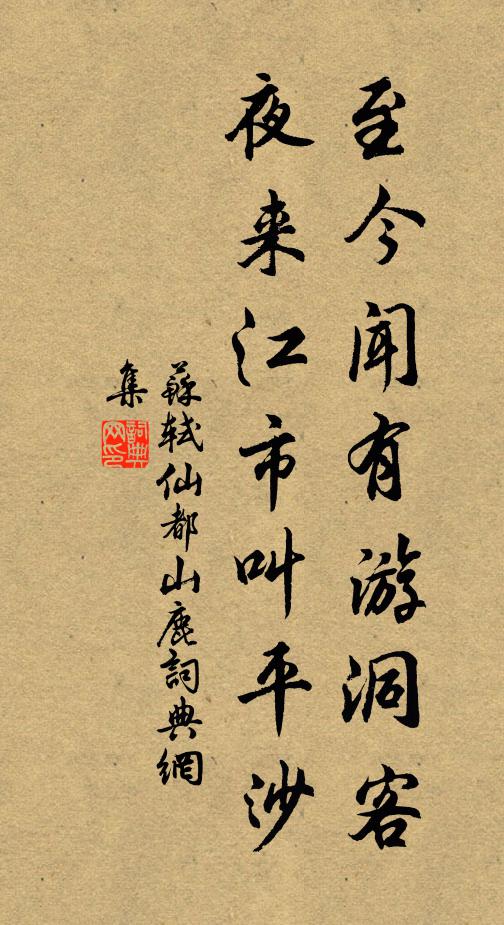 至今闻有游洞客
夜来江市叫平沙
蘇軾仙都山鹿詞典網
集
詞典
网印